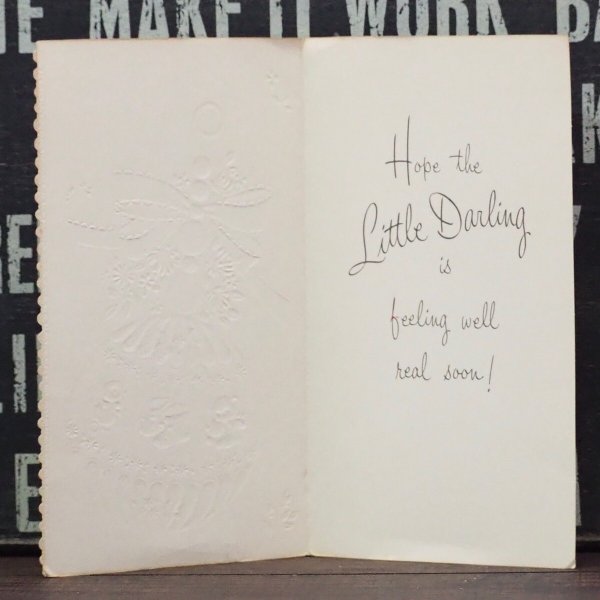 MAKE IT WORK
Hope the
Little Darling
is
feeling well
real soon!